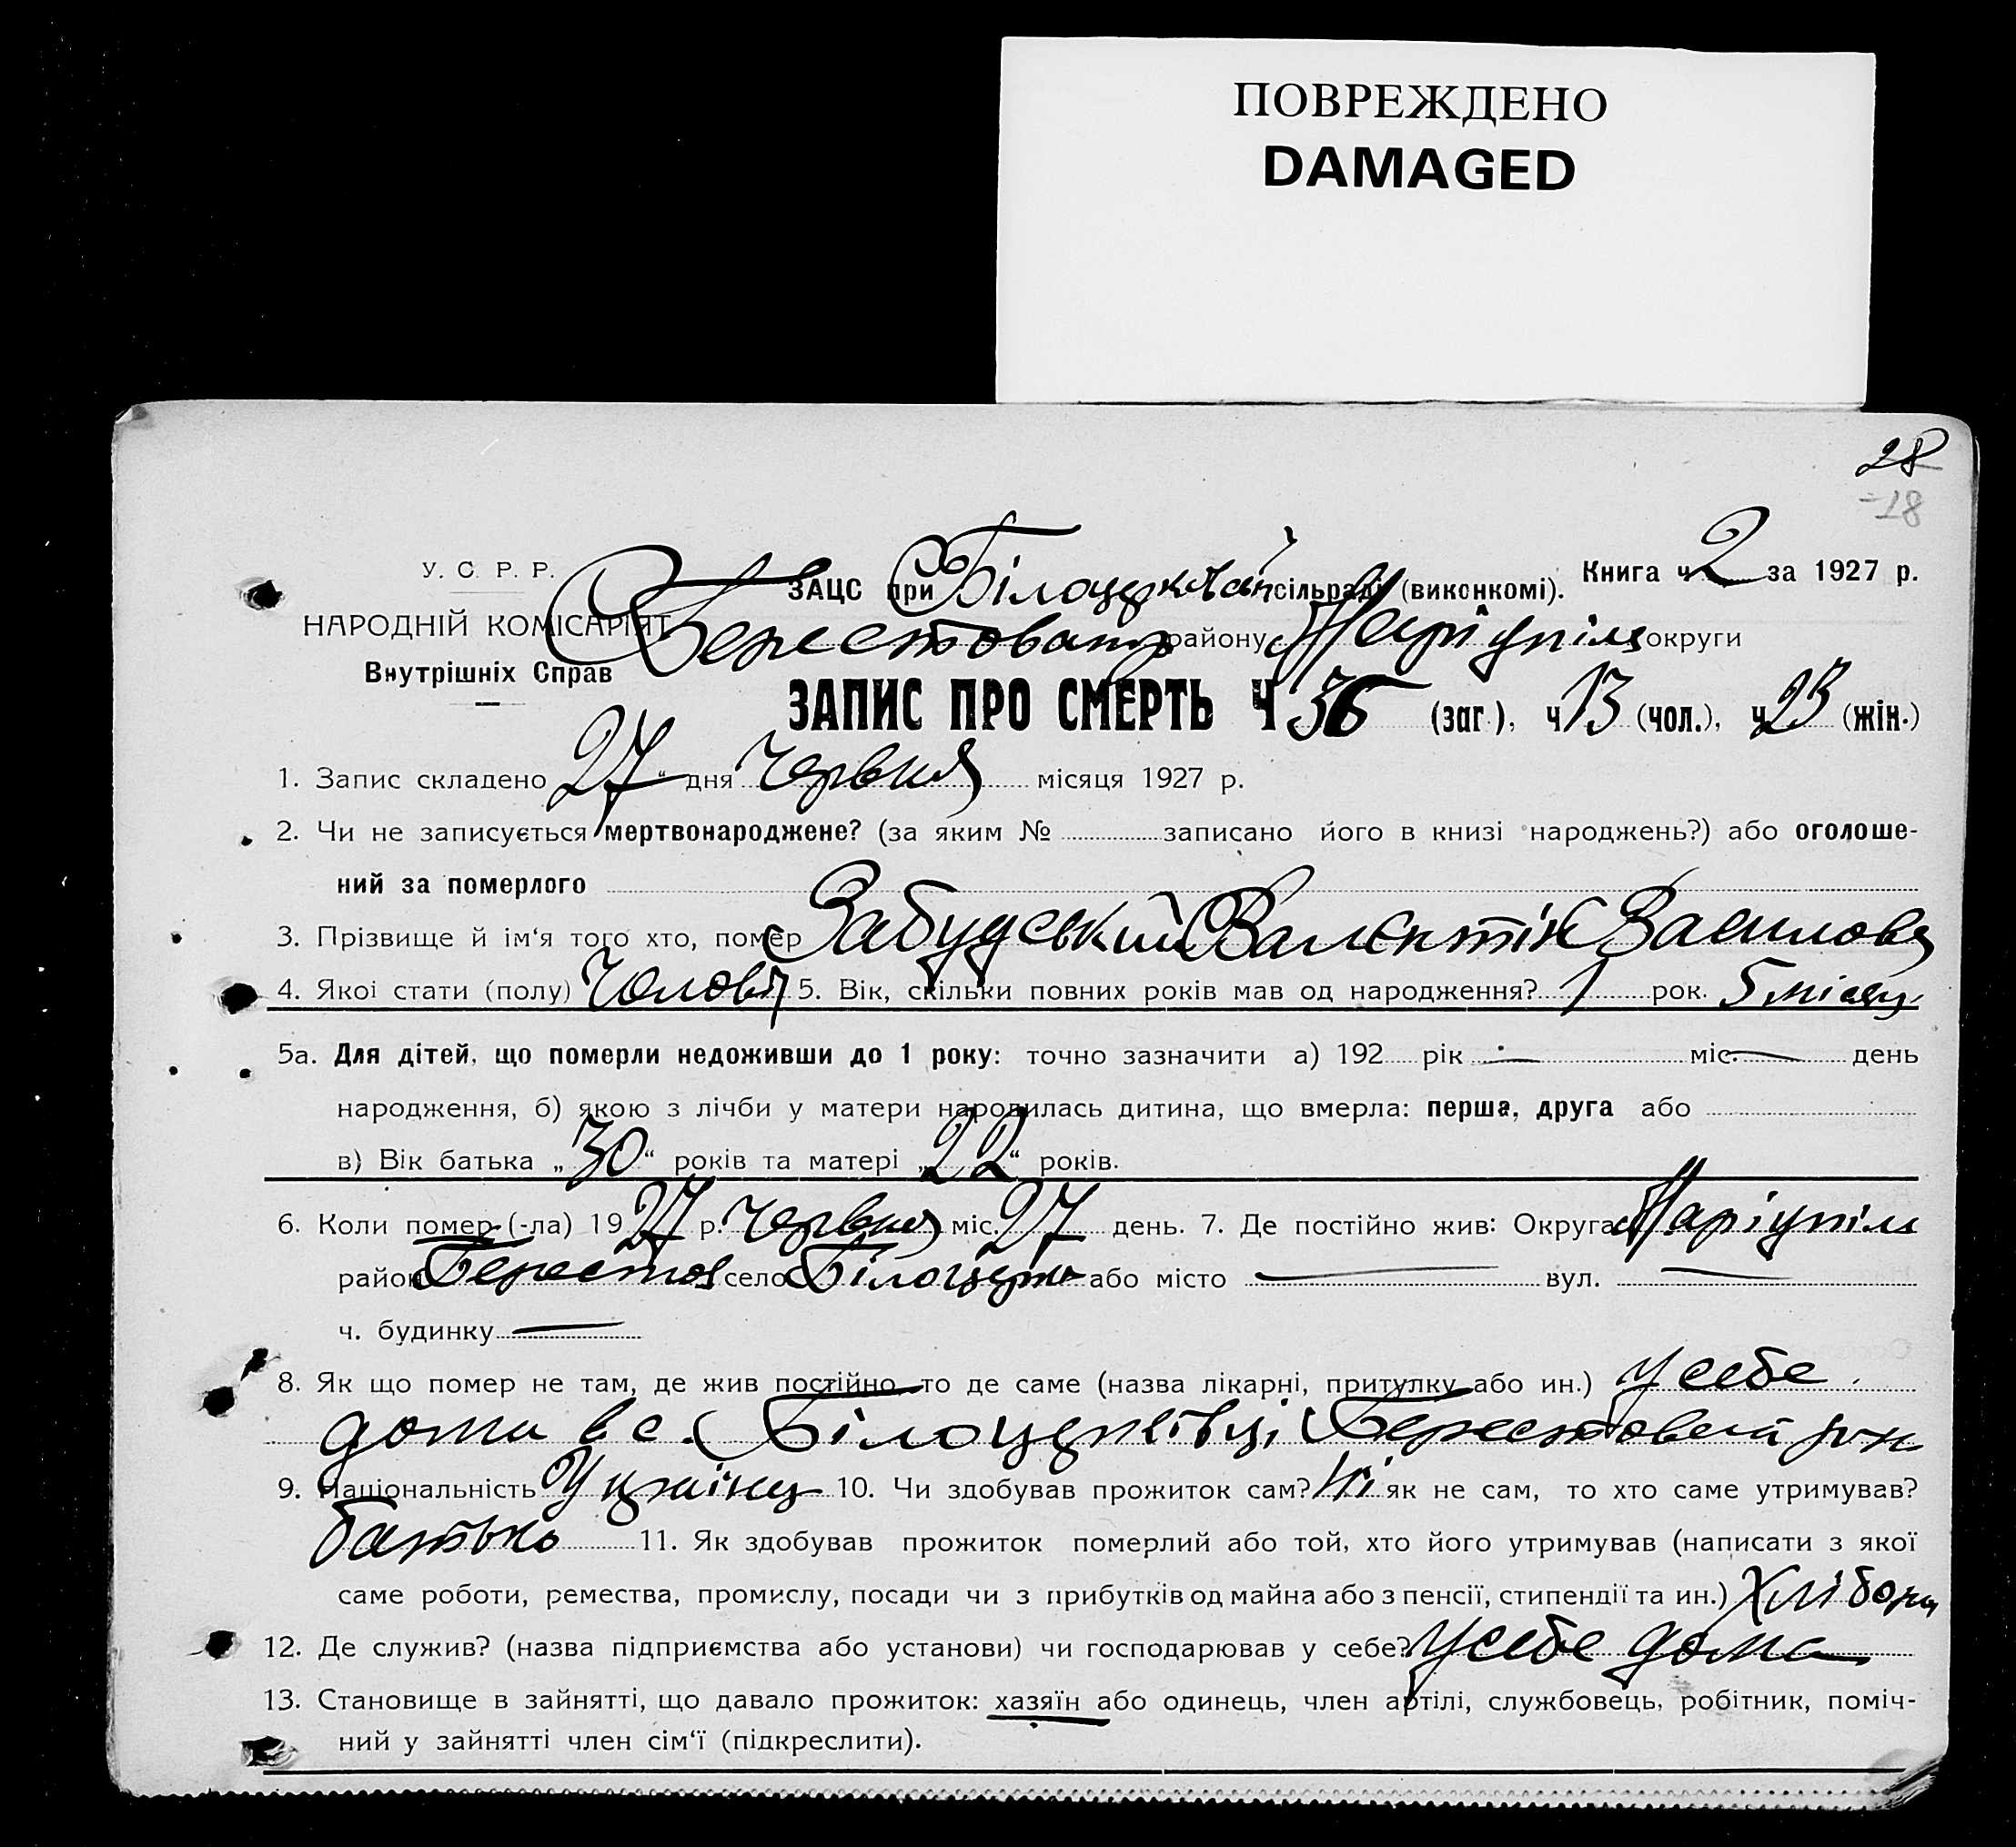 ПОВРЕЖДЕНО
DAMAGED
28
18
У. С. Р. Р.
НАРОДНІЙ КОМІСАРІЯТ
Внутрішніх Справ
ЗАЦС при сільраді (виконкомі). Книга ч. 2 за 1927 р.
району Маріупіль округи
ЗАПИС ПРО СМЕРТЬ Ч 36 (заг.), ч 13 (чол.), ч 23 (жін.)
1. Запис складено 27 дня червня місяця 1927 р.
2. Чи не записується мертвонароджене? (за яким № записано його в книзі народжень?) або оголоше-
ний за померлого
3. Прізвище й ім'я того хто, помер Забудський Валєнтін
4. Якої стати (полу) Чолові 5. Вік, скільки повних років мав од народження? 1 рок. 5 місяц
5а. Для дітей, що померли недоживши до 1 року: точно зазначити а) 192 рік — міс. — день
народження, б) якою з лічби у матери народилась дитина, що вмерла: перша, друга або
в) Вік батька „30“ років та матері „22“ років.
6. Коли помер (-ла) 1927 р. червня міс. 27 день. 7. Де постійно жив: Округа Маріупіль
район Берестов село або місто — вул. —
ч. будинку —
8. Як що помер не там, де жив постійно то де саме (назва лікарні, притулку або ин.) у себе
дома в с. Білоцерківці
9. Національність Українец 10. Чи здобував прожиток сам? Ні як не сам, то хто саме утримував?
батько 11. Як здобував прожиток померлий або той, хто його утримував (написати з якої
саме роботи, ремества, промислу, посади чи з прибутків од майна або з пенсії, стипендії та ин.) Хлібороб
12. Де служив? (назва підприємства або установи) чи господарював у себе? у себе дома
13. Становище в зайнятті, що давало прожиток: хазяїн або одинець, член артілі, службовець, робітник, поміч-
ний у зайнятті член сім'ї (підкреслити).